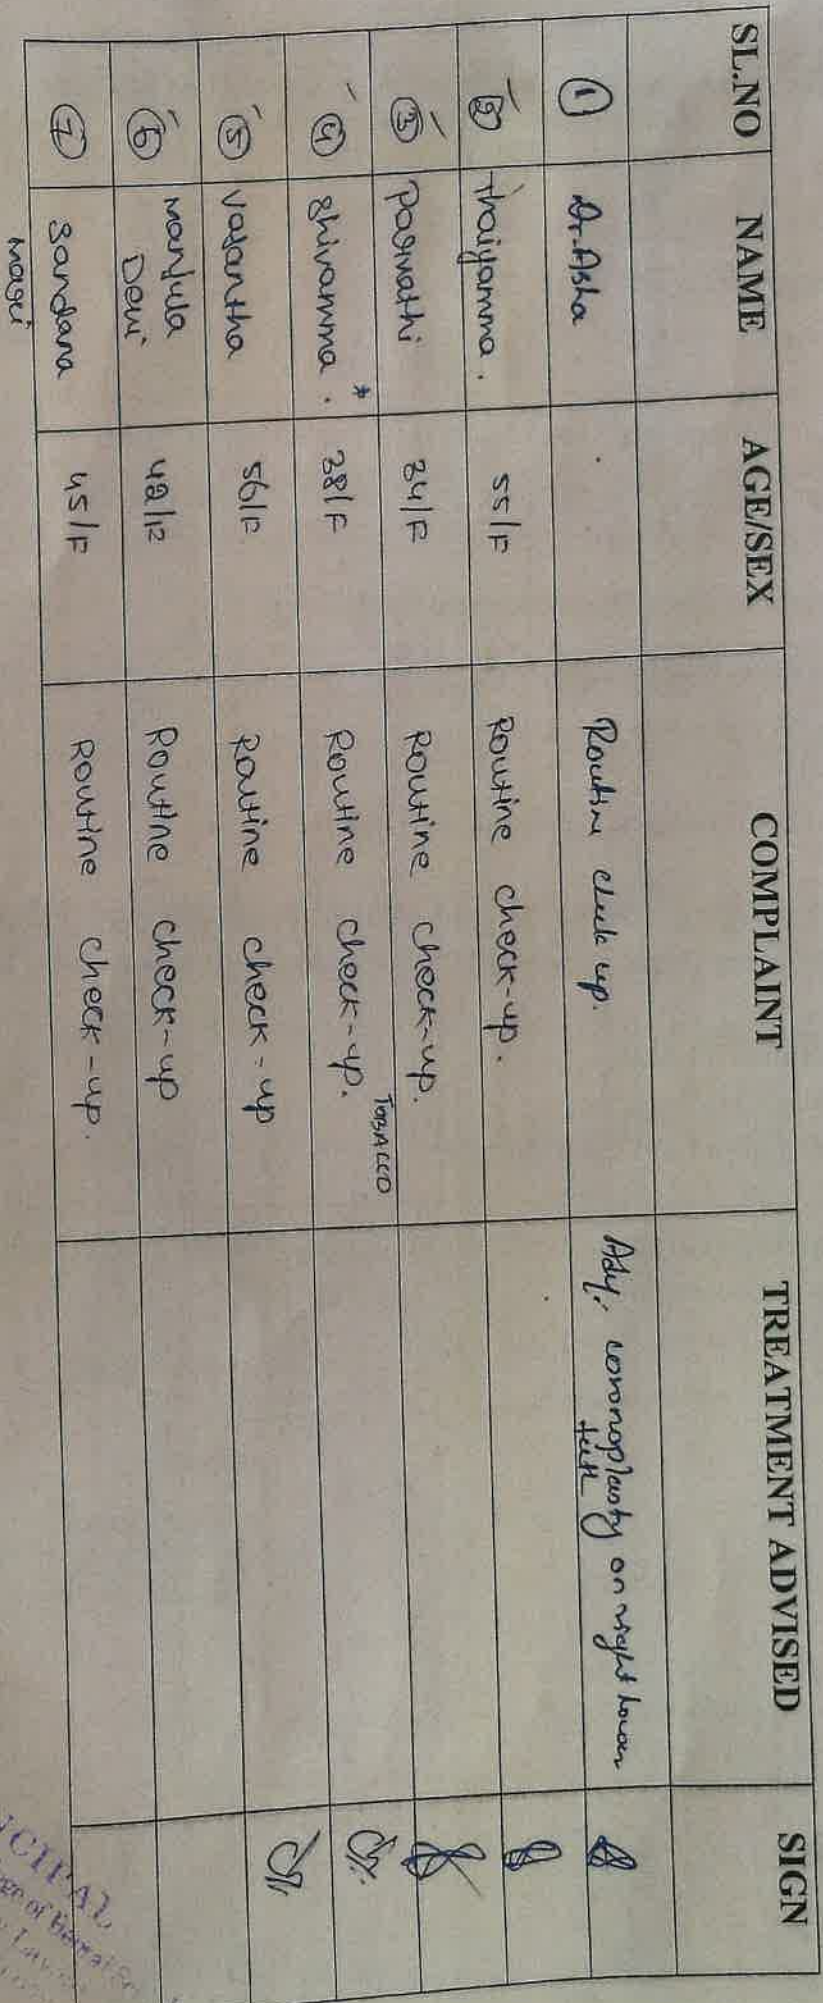 SL.NO NAME AGE/SEX COMPLAINT TREATMENT ADVISED SIGN
1 Dr. Asha Routine check up. Adv: coronoplasty on right lower
teeth
2 Thaiyamma. 55/F Routine check-up.
3 Parvathi 34/F Routine check-up.
TOBACCO
4 Shivamma. * 38/F Routine check-up.
5 Vasantha 56/F Routine check-up
6 Manjula 42/F Routine check-up
Devi
7 Sandana 45/F Routine check-up.
Mageri